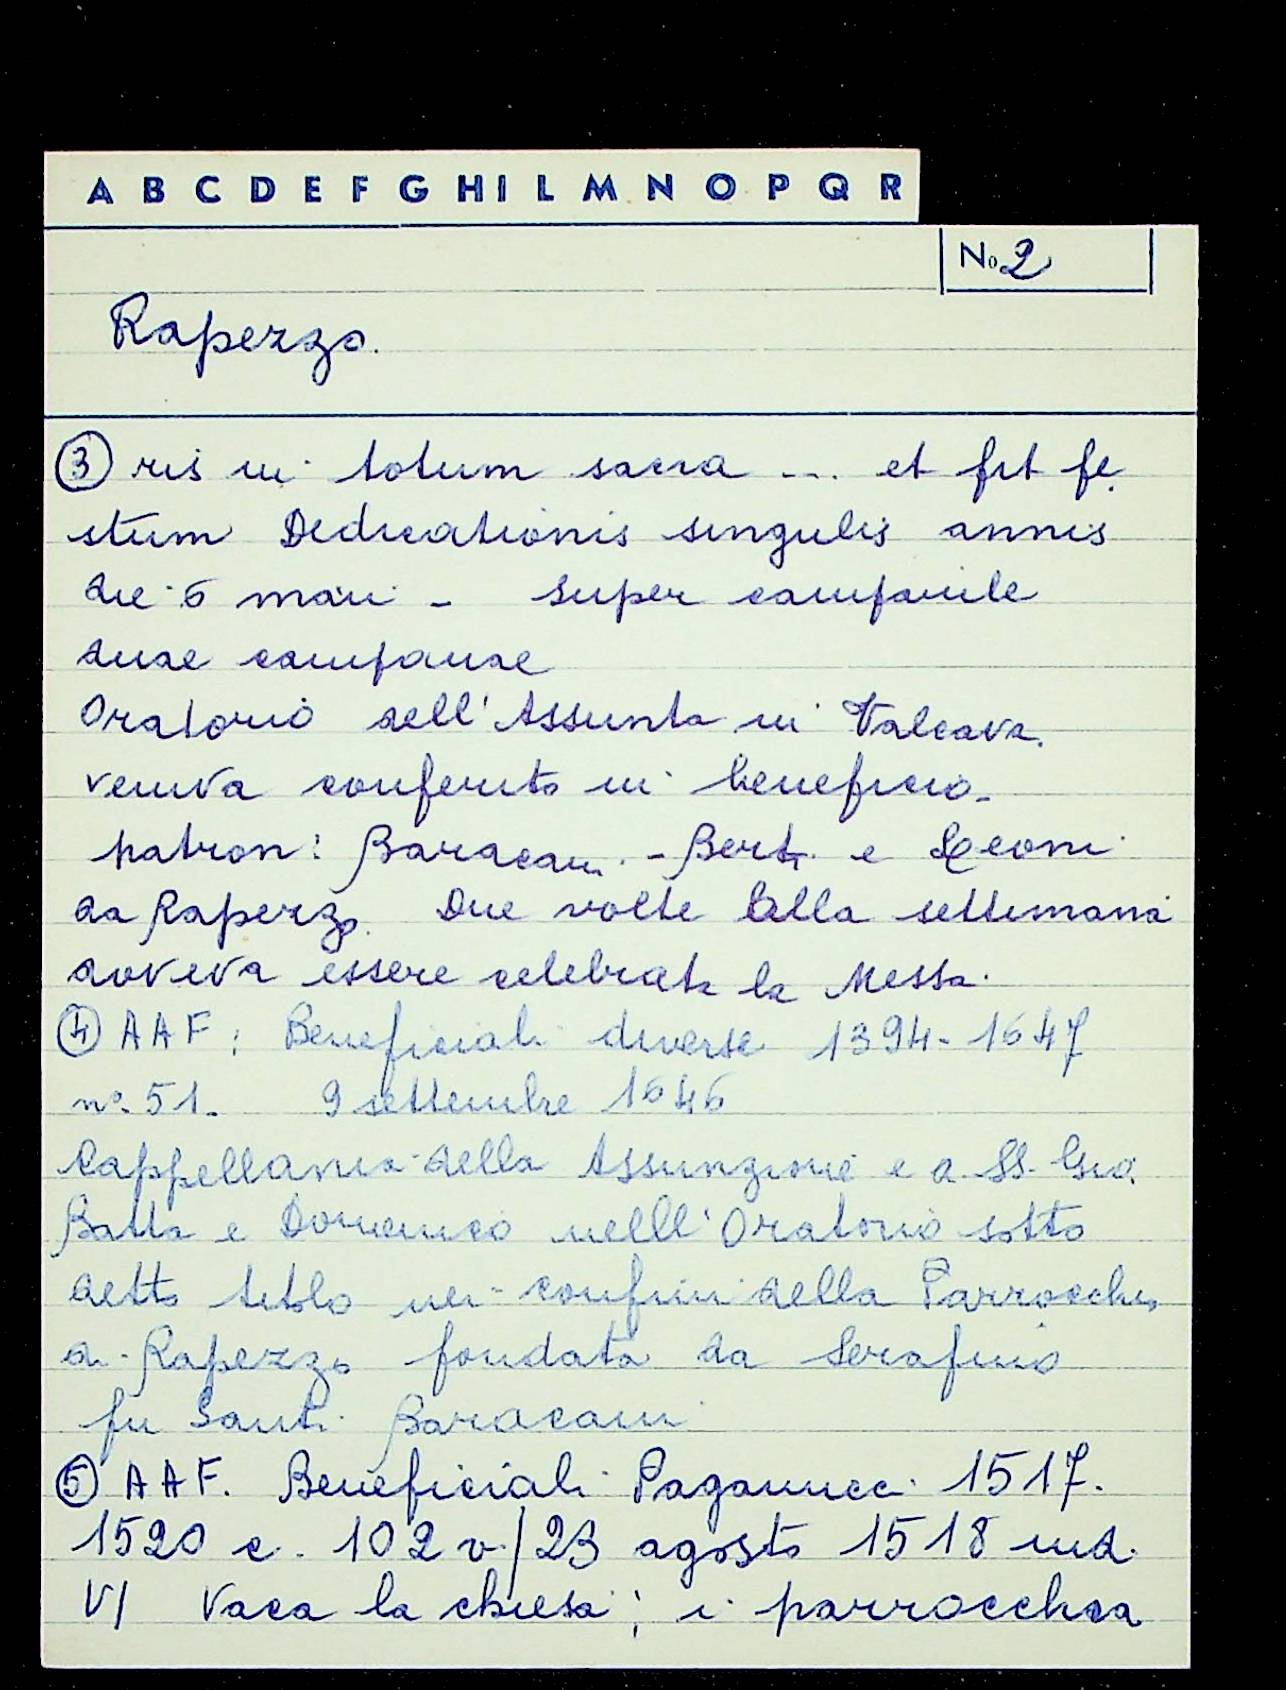 A B C D E F G H I L M N O P Q R
No. 2
Rapezzo.
③ ris in totum sacra ... et fit fe,
stum Dedicationis singulis annis
die 6 maii - super campanile
duae campanae
Oratorio dell'Assunta in Valcava.
veniva conferito in beneficio-
patroni: Baracani - Berti e Leoni
da Rapezzo. Due volte alla settimana
doveva essere celebrata la Messa.
④ AAF: Beneficiali diverse 1394-1647
n°. 51. 9 settembre 1646
Cappellania della Assunzione e a SS. Gio.
Batta e Domenico nelll'Oratorio sotto
detto titolo nei confini della Parrocchia
di Rapezzo fondata da Serafino
fu Santi Baracani
⑤ AAF. Beneficiali Paganucci 1517.
1520 c. 102 v./23 agosto 1518 ind.
VI Vaca la chiesa; i parrocchia